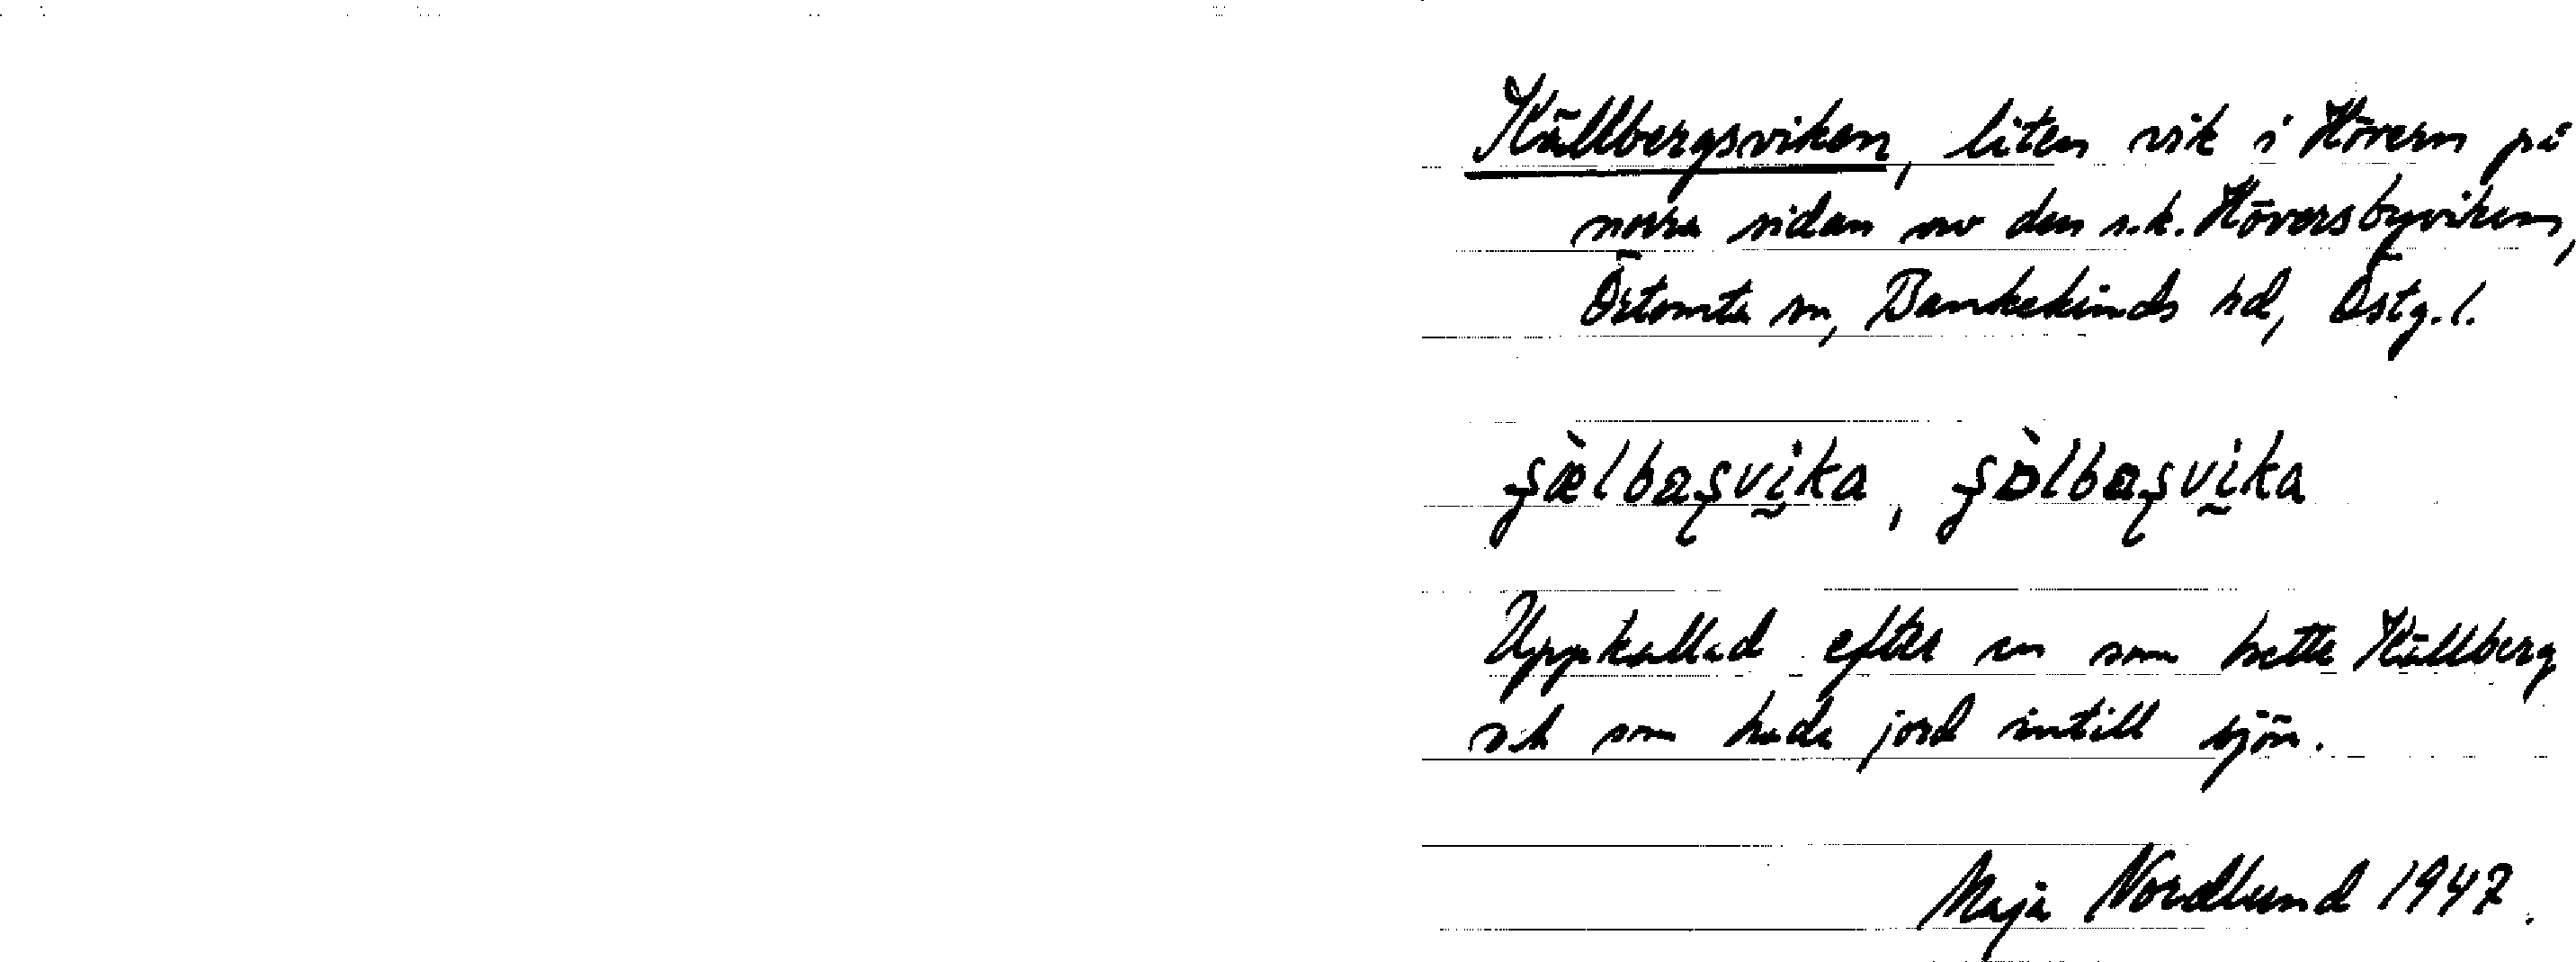 Källbergsviken, liten vik i Hövern på
norra sidan av den s.k. Höversbyviken,
Örtomta sn, Bankekinds hd, Östg.l.
Uppkallad efter en som hette Källberg
och som hade jord intill sjön.
Maja Nordlund 1947.